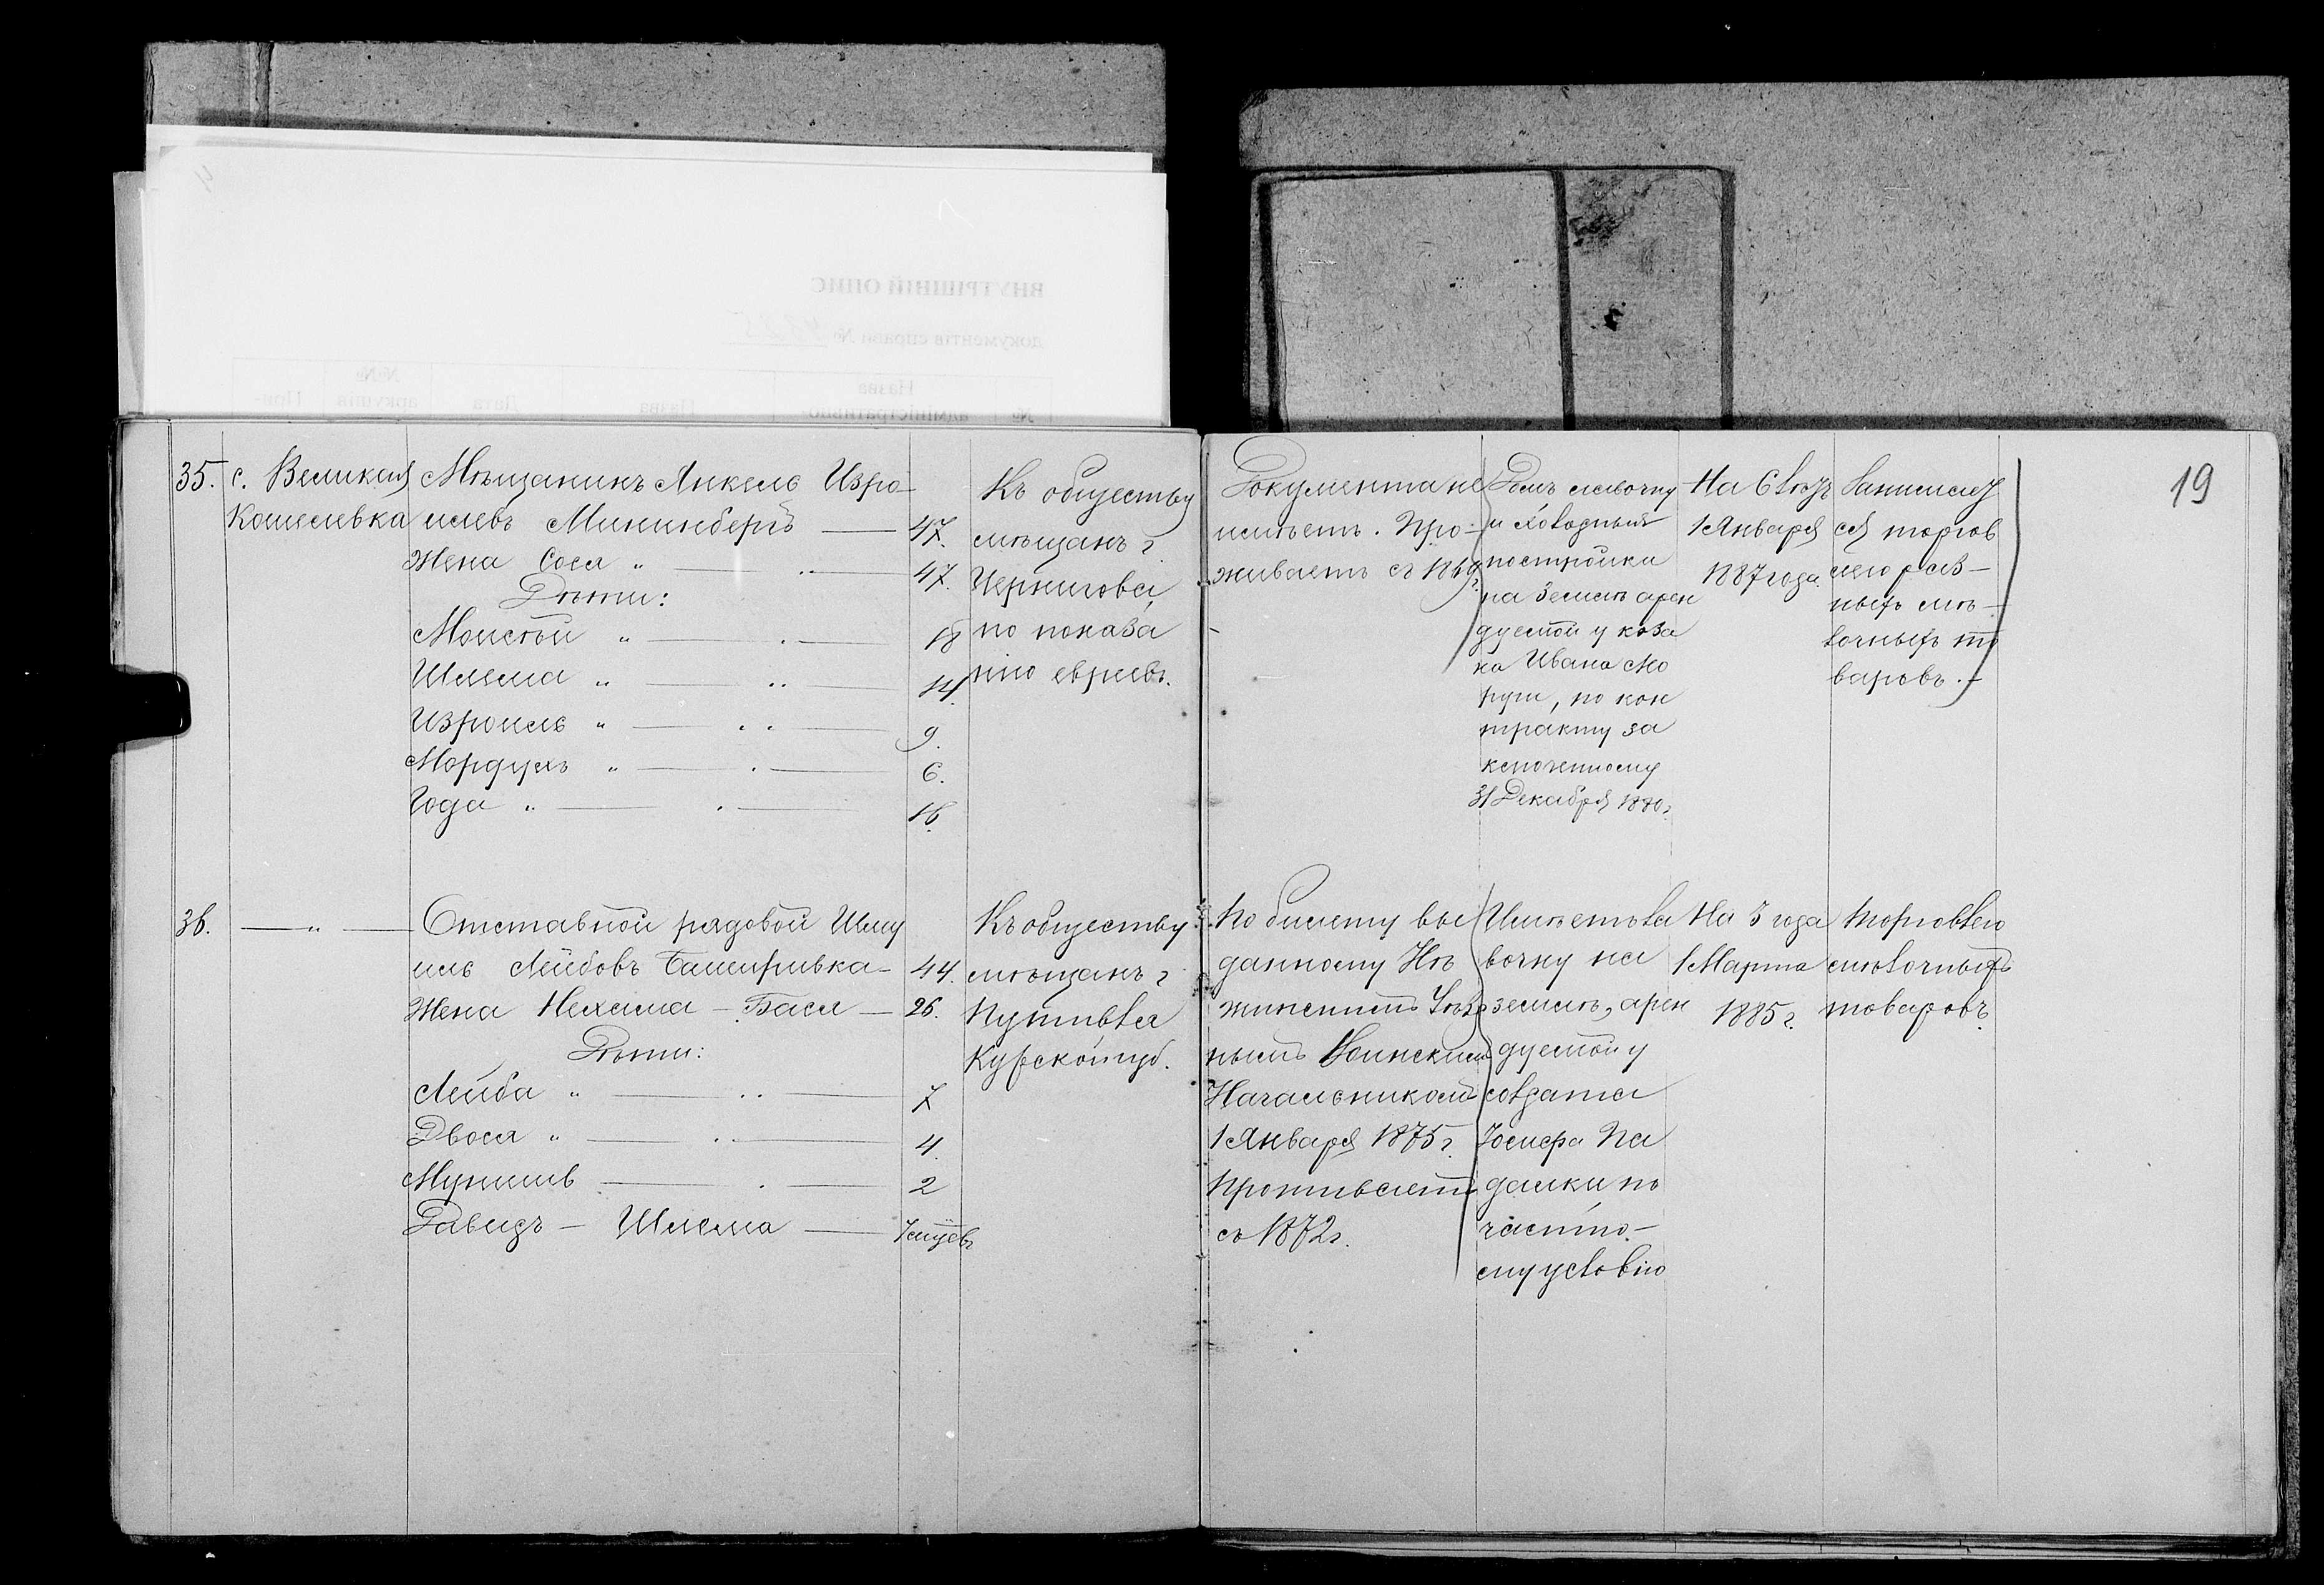 ВНУТРІШНІЙ ОПИС
документів справи №
№
Назва
Дата
№№
аркушів
При-
19
35.
с. Великая
Кошелевка
Мѣщанинъ Янкель Изро-
илевъ Мининбергъ — 47.
Жена Сося " — 47.
Дѣти:
Моисѣй " — 18
Шлема " — 14.
Изроиль " — 9.
Мордухъ " — 6.
Года " — 16.
Къ обществу
мѣщанъ г.
Чернигова,
по показа
нію евреевъ.
Документа не
имѣетъ. Про-
живаетъ съ 1869г.
и холодныя
постройки
на землѣ арен
дуемой у коза
ка Ивана Мо
руги, по кон
тракту за
ключенному
31 Декабря 1880г.
На 6 лѣтъ
1 Января
1887 года.
Занимает
ся торгов
лею раз-
ныхъ мѣ-
лочныхъ то
варовъ. -
36.
— " —
Отставной рядовой Шму
иль Лейбовъ — 44.
Жена Нехама - Бася — 26.
Дѣти:
Лейба " — 7
Двося " — 4.
Мунишъ — 2
Давидъ - Шлема —
Къ обществу
мѣщанъ г.
Путивля
Курской губ.
По билету вы
данному Нѣ
жинскимъ Уѣзд
нымъ Воинскимъ
Начальникомъ
1 Января 1875г.
Проживаетъ
съ 1872г.
Имѣетъ ла
вочку на
землѣ, арен
дуемой у
солдата
Іосифа Па
далки по
частно-
му условію
На 3 года
1 Марта
1885г.
Торговлею
мѣлочныхъ
товаровъ.